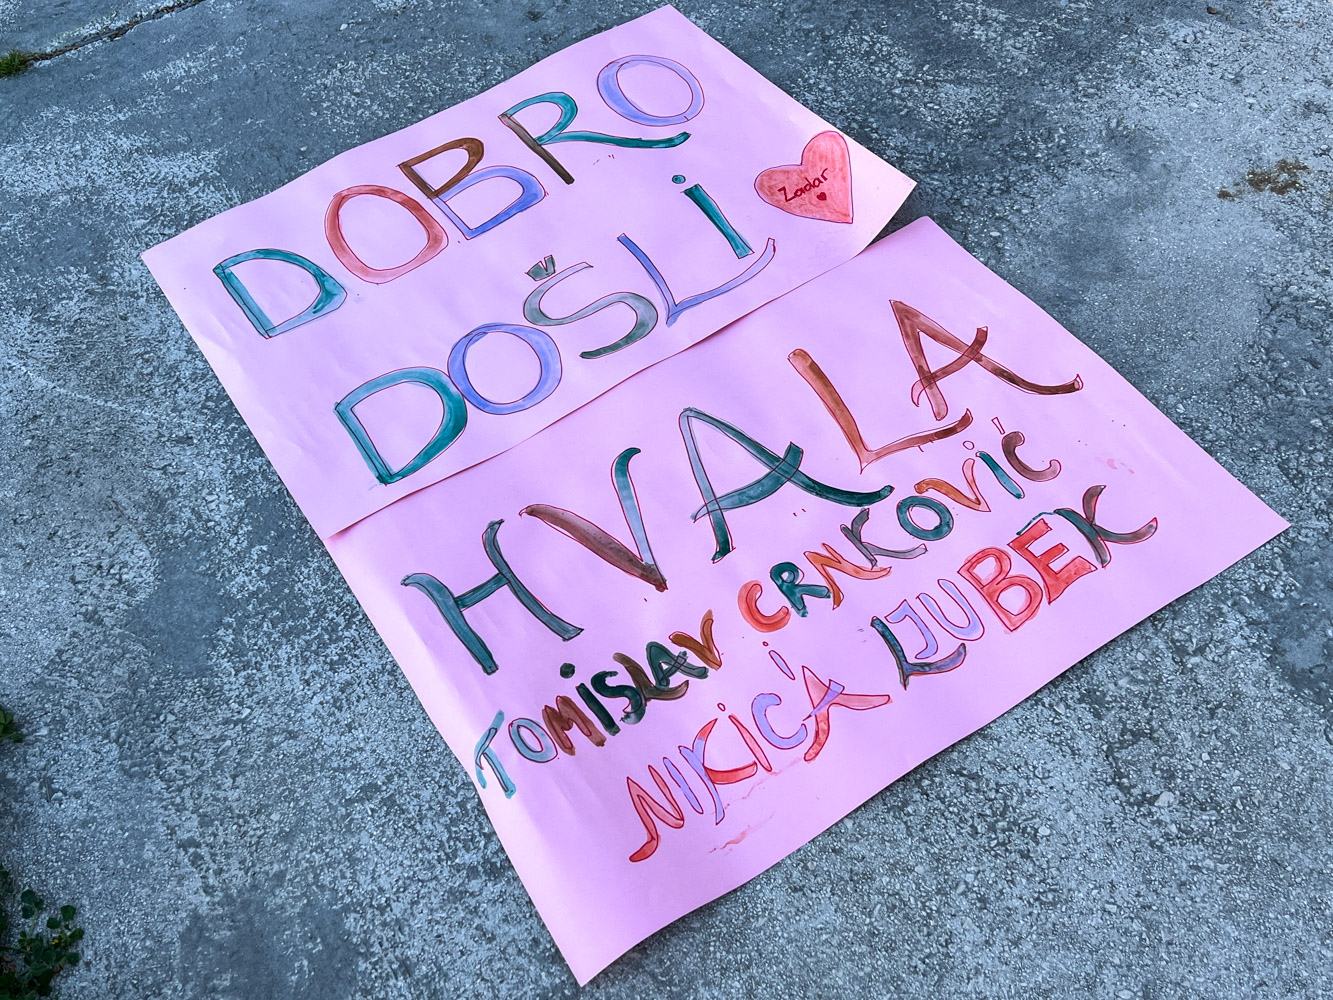 DOBRO
DOŠLI
Zadar
HVALA
TOMISLAV CRNKOVIĆ
NIKICA LJUBEK